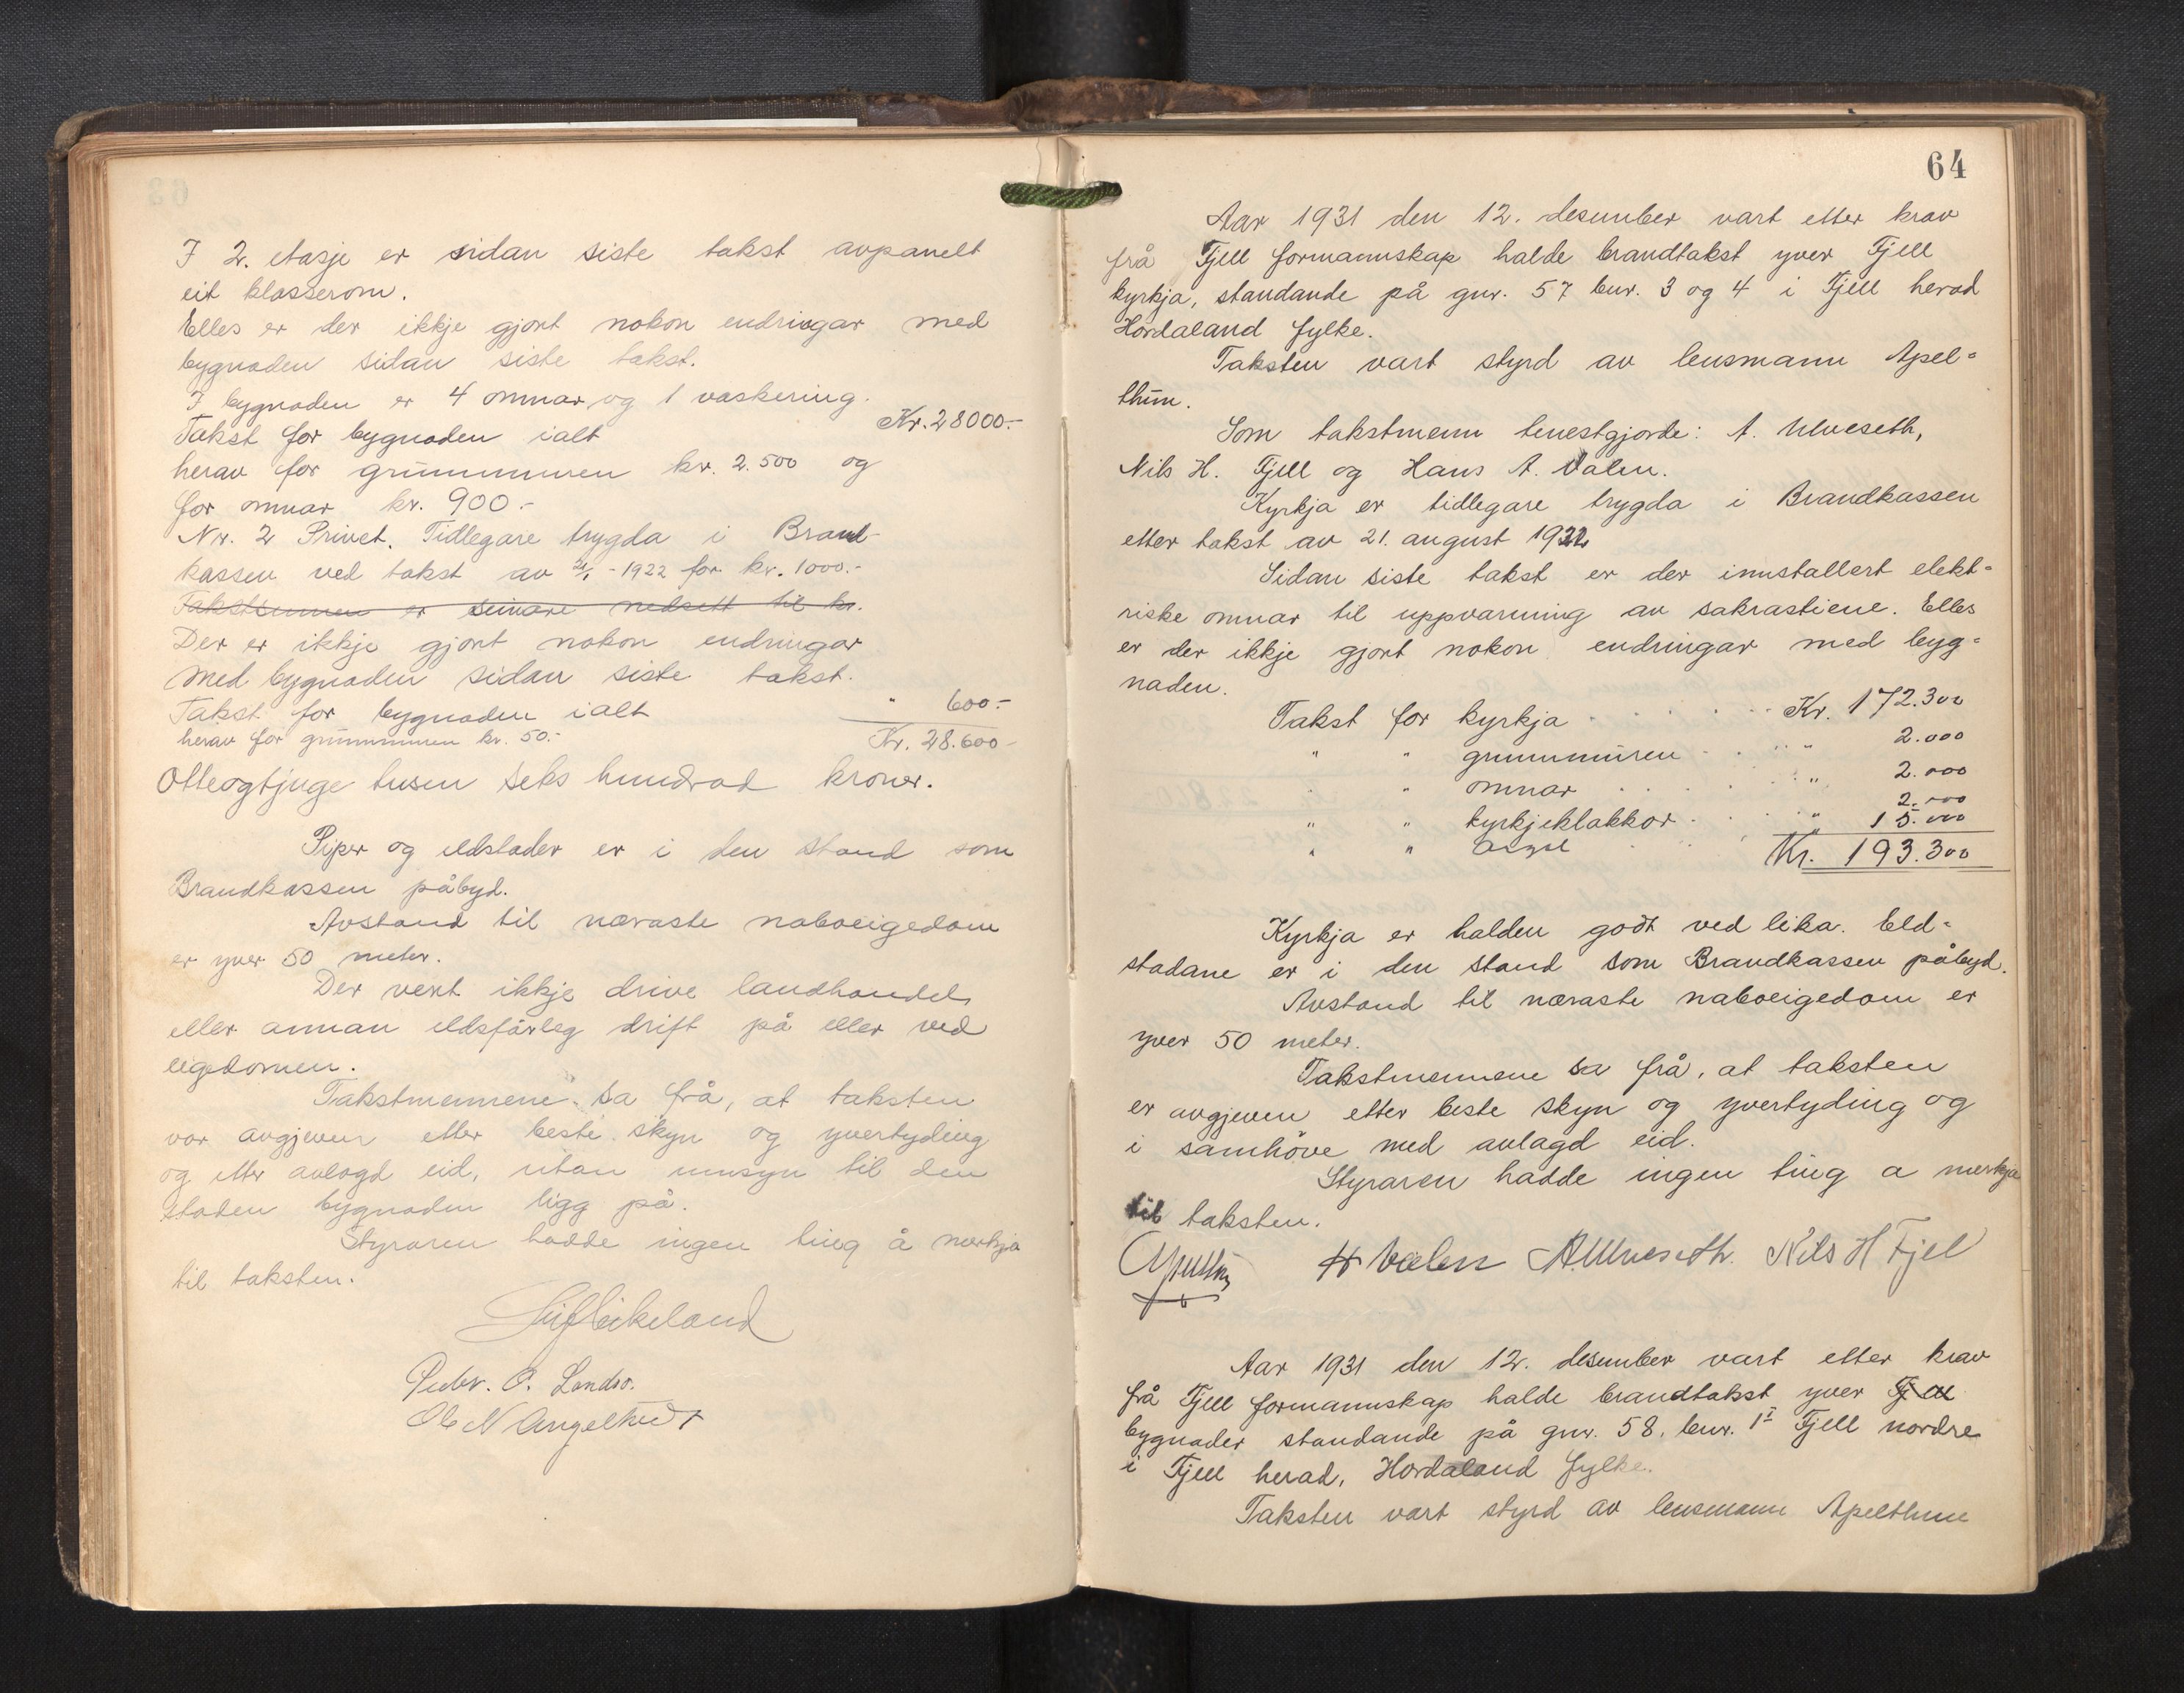 I 2. etasje er sidan siste takst avpanelt
eit klasserom.
Elles er der ikkje gjort nokon endringar med
bygnaden sidan siste takst.
I bygnaden er 4 omnar og 1 vaskering.
Takst for bygnaden ialt Kr. 28000.-
herav for grunnmuren kr. 2.500 og
for omnar kr. 900.-
Nr. 2 Privet. Tidlegare trygda i Brand-
kassen ved takst av - 1922 for kr. 1000.-
Takstsummen er seinare nedsett til kr.
Der er ikkje gjort nokon endringar
med bygnaden sidan siste takst.
Takst for bygnaden ialt " 600.-
herav for grunnmuren kr. 50.- Kr. 28.600-
Otteogtjuge tusen seks hundrad kroner.
Piper og eldstader er i den stand som
Brandkassen påbyd.
Avstand til næraste naboeigedom
er yver 50 meter.
Der vert ikkje drive landhandel
eller annan eldsfårleg drift på eller ved
eigedomen.
Takstmennene sa frå, at taksten
var avgjeven etter beste skyn og yvertyding
og etter avlagd eid, utan umsyn til den
staden bygnaden ligg på.
Styraren hadde ingen ting å merkja
til taksten.
Leif Eikeland
Peder. O. Landro.
Ole N Angeltveit
64
Aar 1931 den 12. desember vart etter krav
frå Fjell formannskap halde brandtakst yver Fjell
kyrkja, standande på gnr. 57 bnr. 3 og 4 i Fjell herad
Hordaland fylke.
Taksten vart styrd av lensmann Apel=
thun.
Som takstmenn tenestgjorde: A. Ulveseth,
Nils H. Fjell og Hans A. Valen.
Kyrkja er tidlegare trygda i Brandkassen
etter takst av 21. august 1922
Sidan siste takst er der innstallert elekt=
riske omnar til uppvarming av sakrastiene. Elles
er der ikkje gjort nokon endringar med byg=
naden.
Takst for kyrkja . . . . . Kr. 172.300
" " grunnmuren . . . " 2.000
" " omnar . . . . " 2.000
" " kyrkjeklokkor . . . " 2.000
" " orgel . . . " 15.000
Kr. 193.300
Kyrkja er halden godt ved lika. Eld=
stadane er i den stand som Brandkassen påbyd.
Avstand til næraste naboeigedom er
yver 50 meter.
Takstmennene sa frå, at taksten
er avgjeven etter beste skyn og yvertyding og
i samhöve med avlagd eid.
Styraren hadde ingen ting a merkja
til taksten.
Apelthun H Valen A. Ulveseth. Nils H Fjell
Aar 1931 den 12. desember vart etter krav
frå Fjell formannskap halde brandtakst yver Fjell
bygnader standande på gnr. 58. bnr. 1 Fjell nordre
i Fjell herad, Hordaland fylke.
Taksten vart styrd av lensmann Apelthun